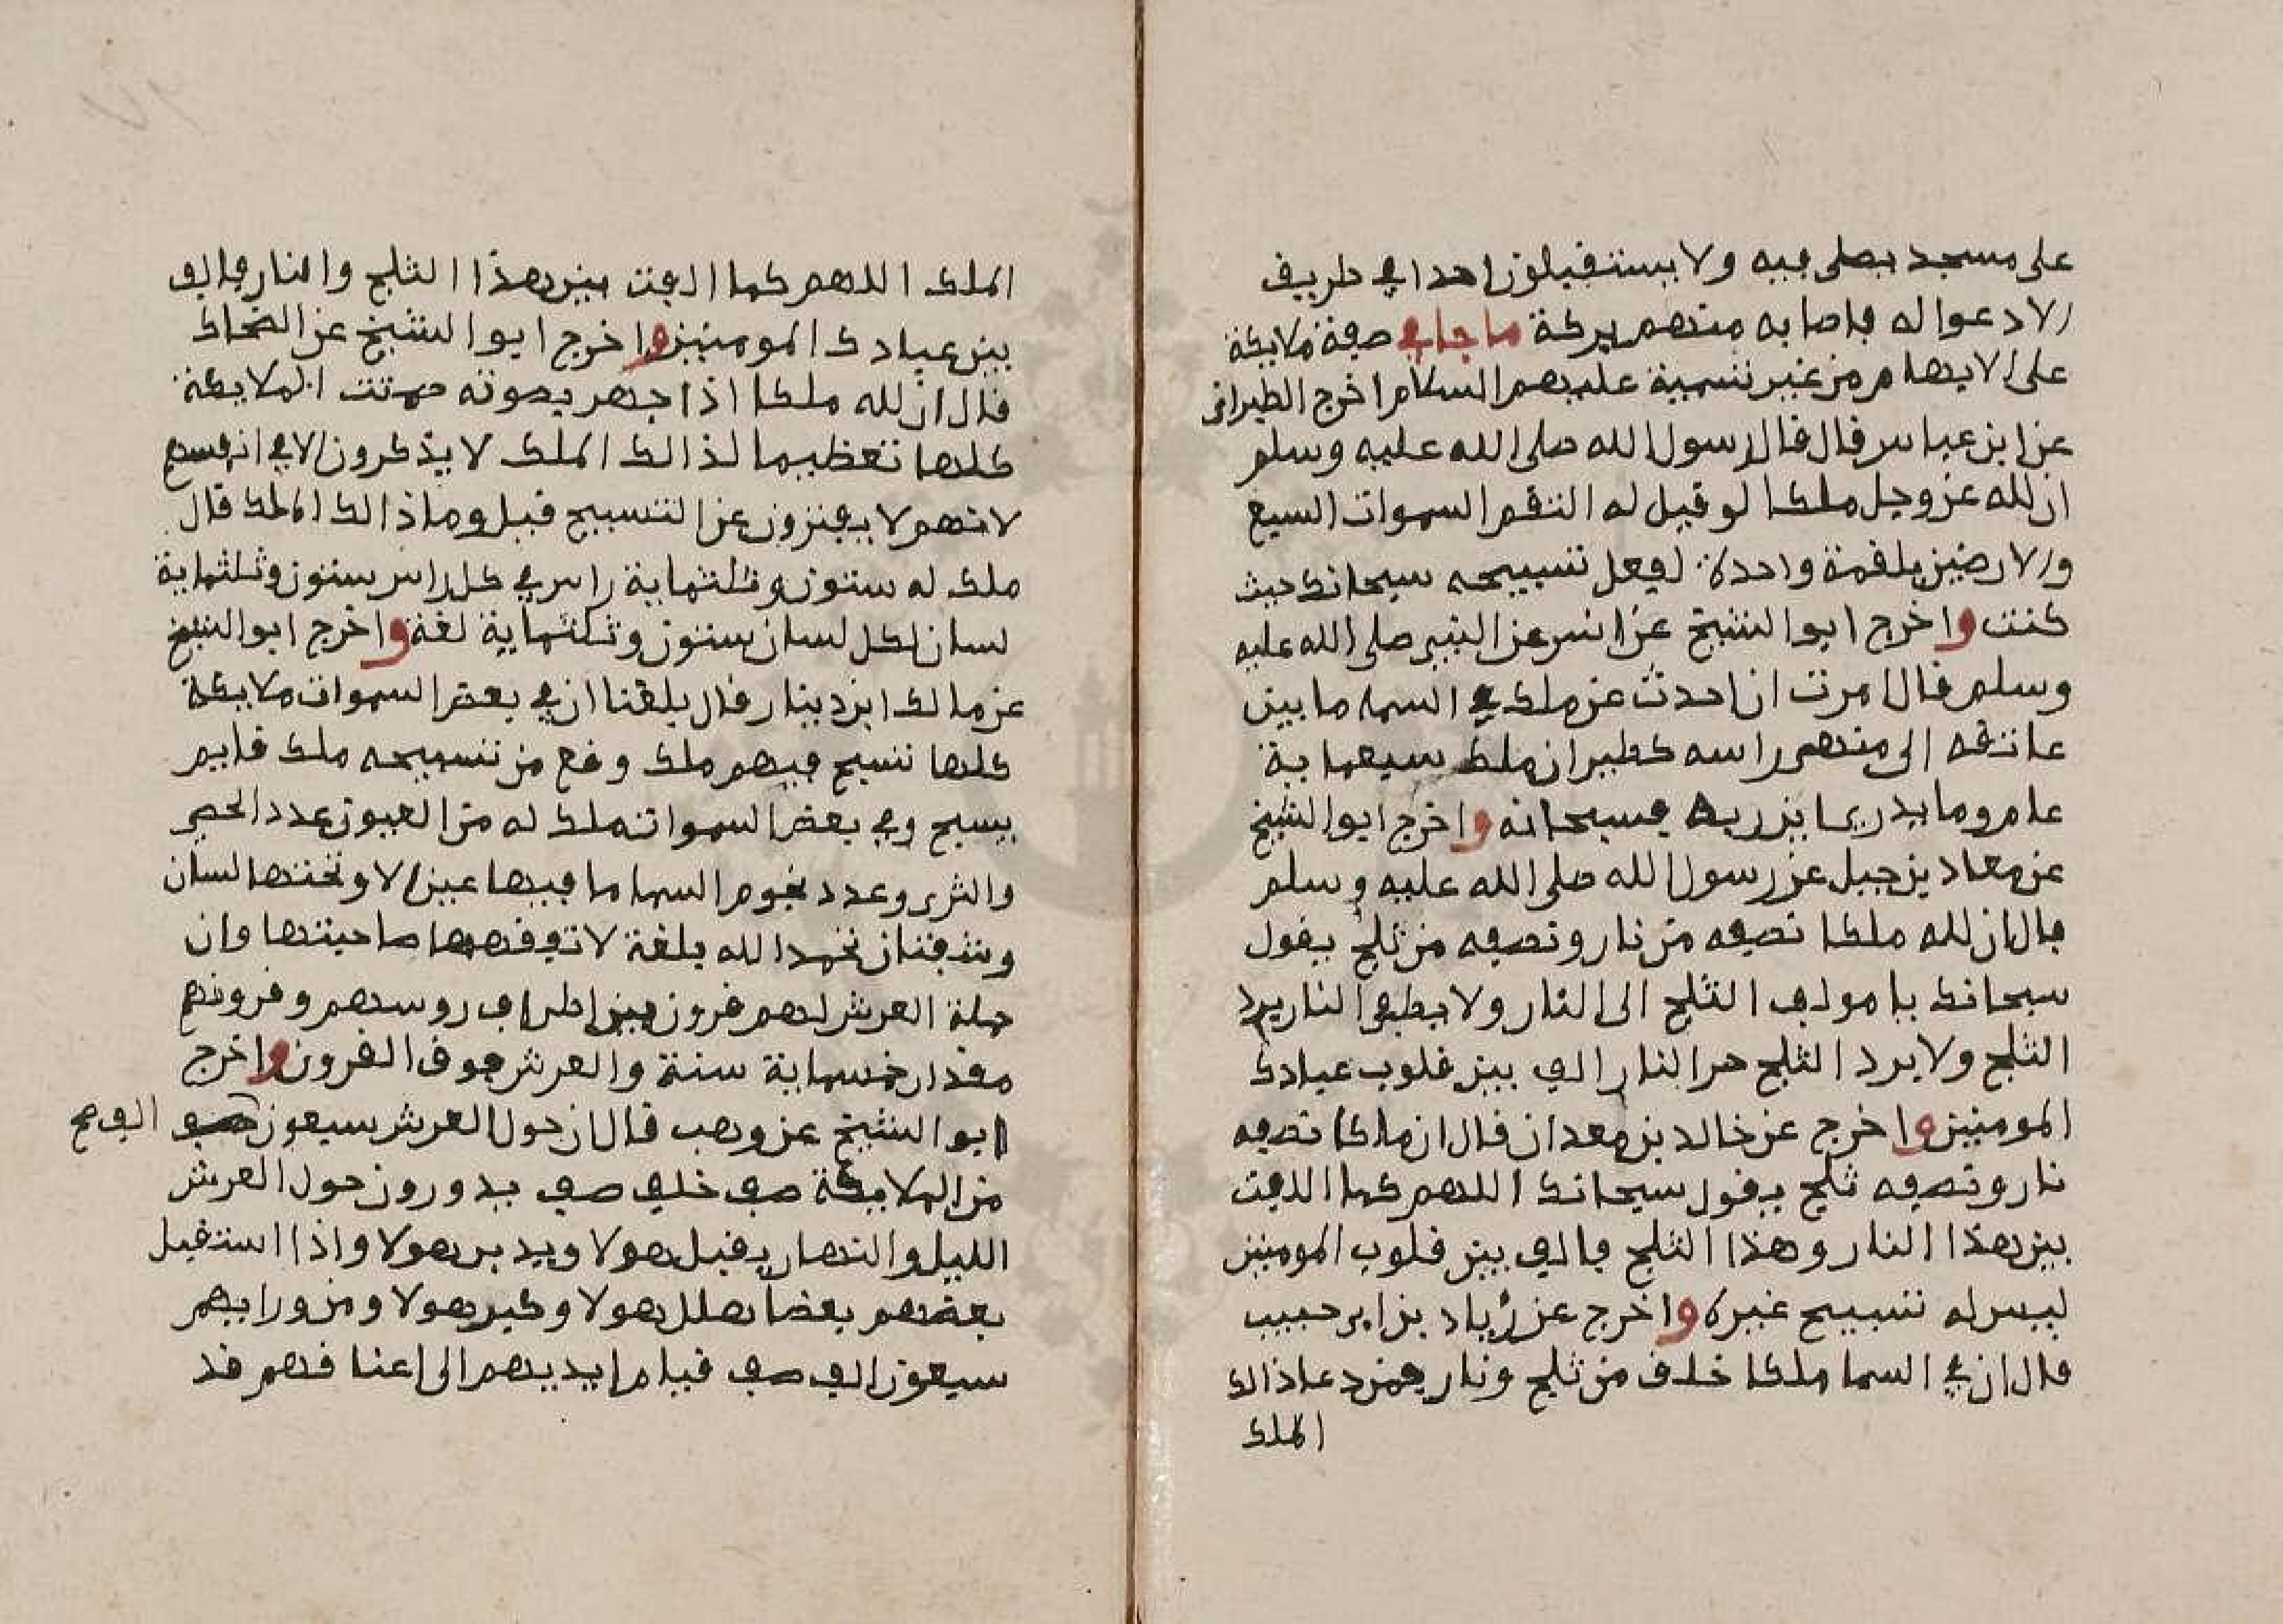 على مسجد يصلى فيه ولا يستقبلون احدا في طريق
الا دعوا له فاصابه منهم بركة ما جا في صفة ملايكة
على الابهام من غير تسمية عليهم السلام اخرج الطبرانى
عن ابن عباس قال قال رسول الله صلى الله عليه وسلم
ان لله عز وجل ملكا لو قيل له التقم السموات السبع
والارضين بلقمة واحدة لفعل تسبيحه سبحانك حيث
كنت واخرج ابوا الشيخ عن انس عن النبي صلى الله عليه
وسلم قال امرت ان احدث عن ملك في السما ما بين
عاتقه الى منتهى راسه كطيران ملك سبعماية
عام وما يدرى اين ربه فسبحانه واخرج ابوا الشيخ
عن معاد بن جبل عن رسول الله صلى الله عليه وسلم
قال ان لله ملكا نصفه من نار ونصفه من ثلج يقول
سبحانك يا مولف الثلج الى النار ولا يطفى النار برد
الثلج ولا يرد الثلج حر النار الف بين قلوب عبادك
المومنين واخرج عن خالد بن معدان قال ان ملكا نصفه
نار ونصفه ثلج يقول سبحانك اللهم كما الفت
بين هذا النار وهذا الثلج فالف بين قلوب المومنين
ليس له تسبيح غيره واخرج عن زياد بن ابي حبيب
قال ان في السما ملكا خلق من ثلج ونار فمن دعا ذالك
الملك
الملك اللهم كما الفت بين هذا الثلج والنار فالف
بين عبادك المومنين واخرج ابوا الشيخ عن الضحاك
قال ان لله ملكا اذا جهر بصوته صمتت الملايكة
كلها تعظيما لذالك الملك لا يذكرون الا في انفسهم
لانهم لا يفترون عن التسبيح قيل وما ذالك الملك قال
ملك له ستون وثلثماية راس في كل راس ستون وثلثماية
لسان لكل لسان ستون وثلثماية لغة واخرج ابوا الشيخ
عن مالك ابن دينار قال بلغنا ان في بعض السموات ملايكة
كلها تسبح فيهم ملك وقع من تسبيحه ملك قايم
يسبح وفي بعض السموات ملك له من العيون عدد الحصى
والثرى وعدد نجوم السما ما فيها عين الا وتحتها لسان
وشفتان تحمد الله بلغة لا تفقهها صاحبتها وان
حملة العرش لهم قرون بين اطراف روسهم وقرونهم
مقدار خمسماية سنة والعرش فوق القرون واخرج
ابوا الشيخ عن وهب قال ان حول العرش سبعون الف صح
من الملايكة صف خلف صف يدورون حول العرش
الليل والنهار يقبل هولا ويدبر هولا واذا استقبل
بعضهم بعضا هلل هولا وكبر هولا ومن ورايهم
سبعون الف صف قيام ايديهم الى اعناقهم قد